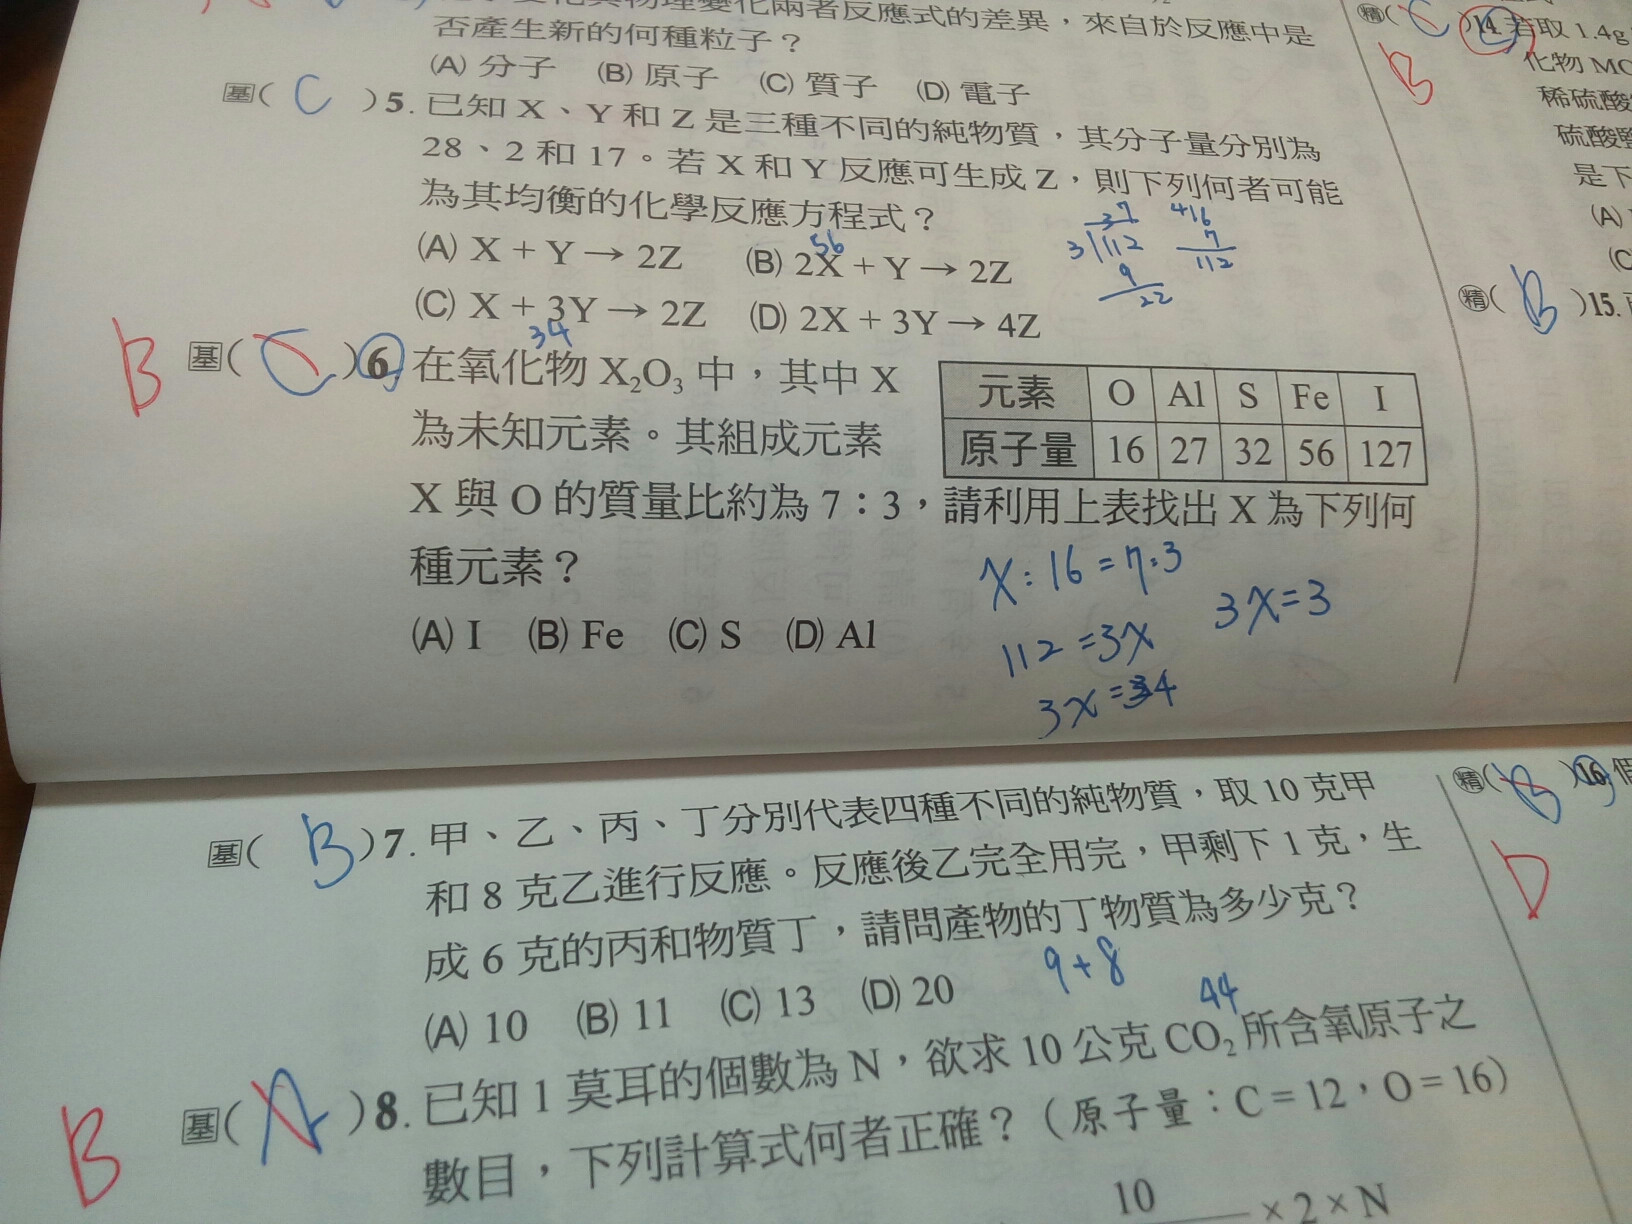 變化與物理變化兩者反應式的差異，來自於反應中是
否產生新的何種粒子？
(A) 分子 (B) 原子 (C) 質子 (D) 電子
基( C )5. 已知 X、Y 和 Z 是三種不同的純物質，其分子量分別為
28、2 和 17。若 X 和 Y 反應可生成 Z，則下列何者可能
為其均衡的化學反應方程式？
(A) X + Y → 2Z (B) 2X + Y → 2Z
56
(C) X + 3Y → 2Z (D) 2X + 3Y → 4Z
34
37
3 112
9
22
16
7
112
B 基( C )6. 在氧化物 X₂O₃ 中，其中 X
為未知元素。其組成元素
X 與 O 的質量比約為 7：3，請利用上表找出 X 為下列何
種元素？
(A) I (B) Fe (C) S (D) Al
元素 O Al S Fe I
原子量 16 27 32 56 127
X : 16 = 7 : 3
112 = 3X
3X = 34
3X = 3
基( B )7. 甲、乙、丙、丁分別代表四種不同的純物質，取 10 克甲
和 8 克乙進行反應。反應後乙完全用完，甲剩下 1 克，生
成 6 克的丙和物質丁，請問產物的丁物質為多少克？
9 + 8
(A) 10 (B) 11 (C) 13 (D) 20
44
B 基( A )8. 已知 1 莫耳的個數為 N，欲求 10 公克 CO₂ 所含氧原子之
數目，下列計算式何者正確？（原子量：C = 12，O = 16）
10
× 2 × N
精( C )14. 若取 1.4g
B
化物 MO
稀硫酸
硫酸鹽
是下
(A)
(C
精( B )15.
精( B )16. 個
D